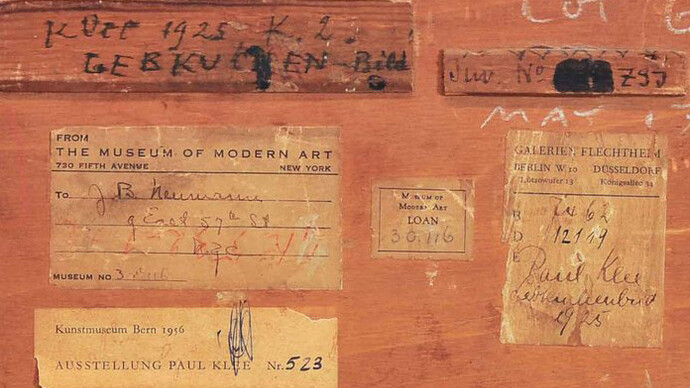 KLEE 1925 K. 2.
LEBKUCHEN-Bild
LOT
Inv. No
MAY
FROM
THE MUSEUM OF MODERN ART
730 FIFTH AVENUE NEW YORK
TO J B Neumann
9 East 57th St
NYC
MUSEUM NO 3
MUSEUM OF
MODERN ART
LOAN
30.116
GALERIEN FLECHTHEIM
BERLIN W 10 DÜSSELDORF
Lützowufer 13 Königsallee 34
B 7462
D 12119
E
Paul Klee
Lebkuchenbild
1925
Kunstmuseum Bern 1956
AUSSTELLUNG PAUL KLEE Nr. 523